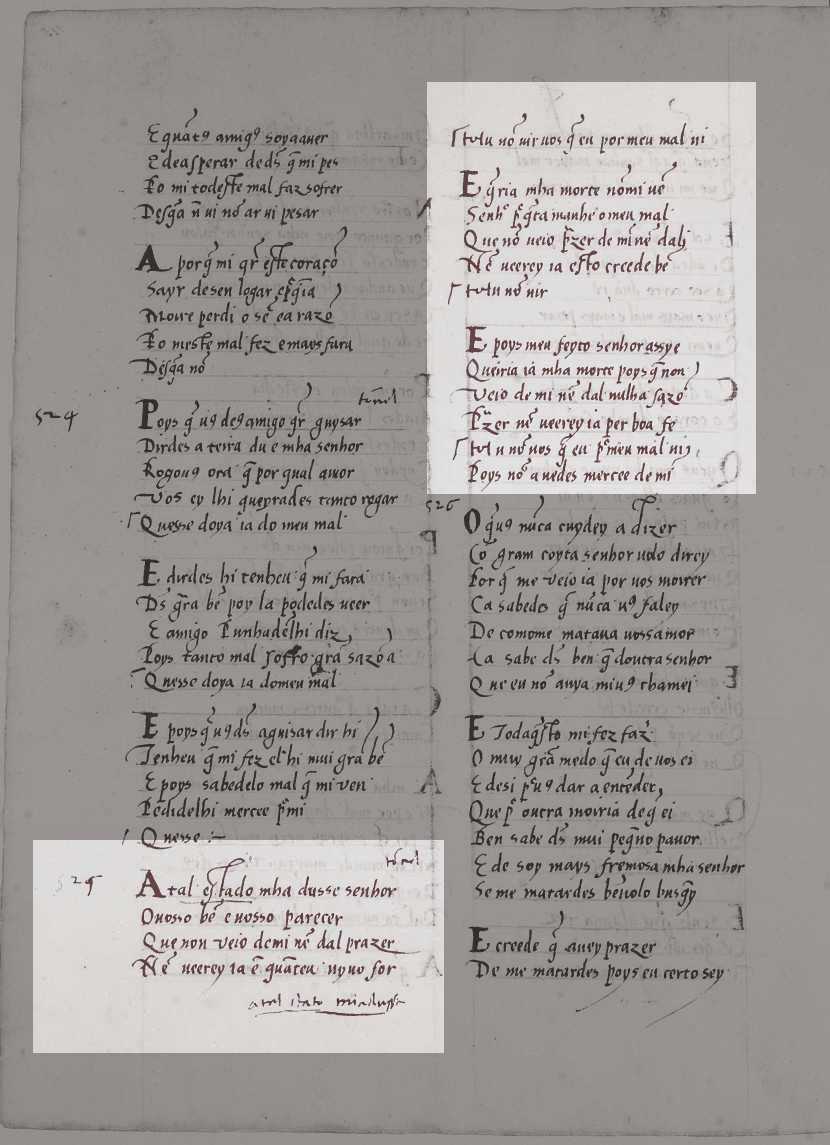 E quãtꝯ amigꝯ soya auer
E deasperar de ds̃ q̃ mi pes
Po mi todeste mal faz sofrer
Desq̃a ñ ui nõ ar ui pesar
A por q̃ mi qr̃ este coraçõ
Sayr de sen logar
Moire perdi o sẽ e a razõ
Po meste mal fez e mays fara
Desq̃a nõ
tornel
524
Poys q̃ uꝯ deꝯ amigo qr̃ guysar
Dirdes a terra du e mha senhor
Rogouꝯ ora q̃ por qual amor
Vos ey lhi queyrades tanto rogar
Quesse doya ia do meu mal
E dirdes hi tenheu q̃ mi fara
Ds̃ gr̃a bẽ poy la podedes ueer
E amigo Punhadelhi diz
Poys tanto mal soffro grã sazõ a
Quesse doya ia do meu mal
E poys q̃ uꝯ ds̃ aguisar dir hi
Tenheu q̃ mi fez el hi mui grã bẽ
E poys sabedelo mal q̃ mi ven
Pedidelhi mercee pr̃ mi
Quesse :~
tornel
525
A tal estado mha dusse senhor
O uosso bẽ e uosso parecer
Que non veio de mi nẽ dal prazer
Nẽ ueerey ia ẽ quãteu uyuo for
atal stato miadusse
tolu nõ uir uos q̃ eu por meu mal ui
E q̃ria mha morte nõ mi uẽ
Senhõ pr̃ q̃ta manhe o meu mal
Que nõ veio pr̃zer de mi nẽ dal
Nẽ ueerey ia esto creede bẽ
tolu nõ uir
E poys meu feyto senhor assy e
Queiria ia mha morte poys q̃ non
Veio de mi nẽ dal nulha sazõ
Pr̃zer nẽ ueerey ia per boa fe
tolu nõ uos q̃ eu pr̃ meu mal ui
Poys nõ auedes mercee de mi
526
O q̃ uꝯ nũca cuydey a dizer
Cõ gram coyta senhor uolo direy
Por q̃ me veio ia por uos morrer
Ca sabedes q̃ nũca uꝯ faley
De comome mataua uossamor
Ca sabe ds̃ ben q̃ doutra senhor
Que eu nõ auya miuꝯ chamei
E Todaq̃sto mi fez faz
O muy grã medo q̃ eu de uos ei
E desi pr̃ uꝯ dar a entẽder
Que pr̃ outra moiria de q̃ ei
Ben sabe ds̃ mui peq̃no pauor
E de soy mays fremosa mha senhor
Se me matardes bẽ uolo busq̃y
E creede q̃ auey prazer
De me matardes poys eu certo sey